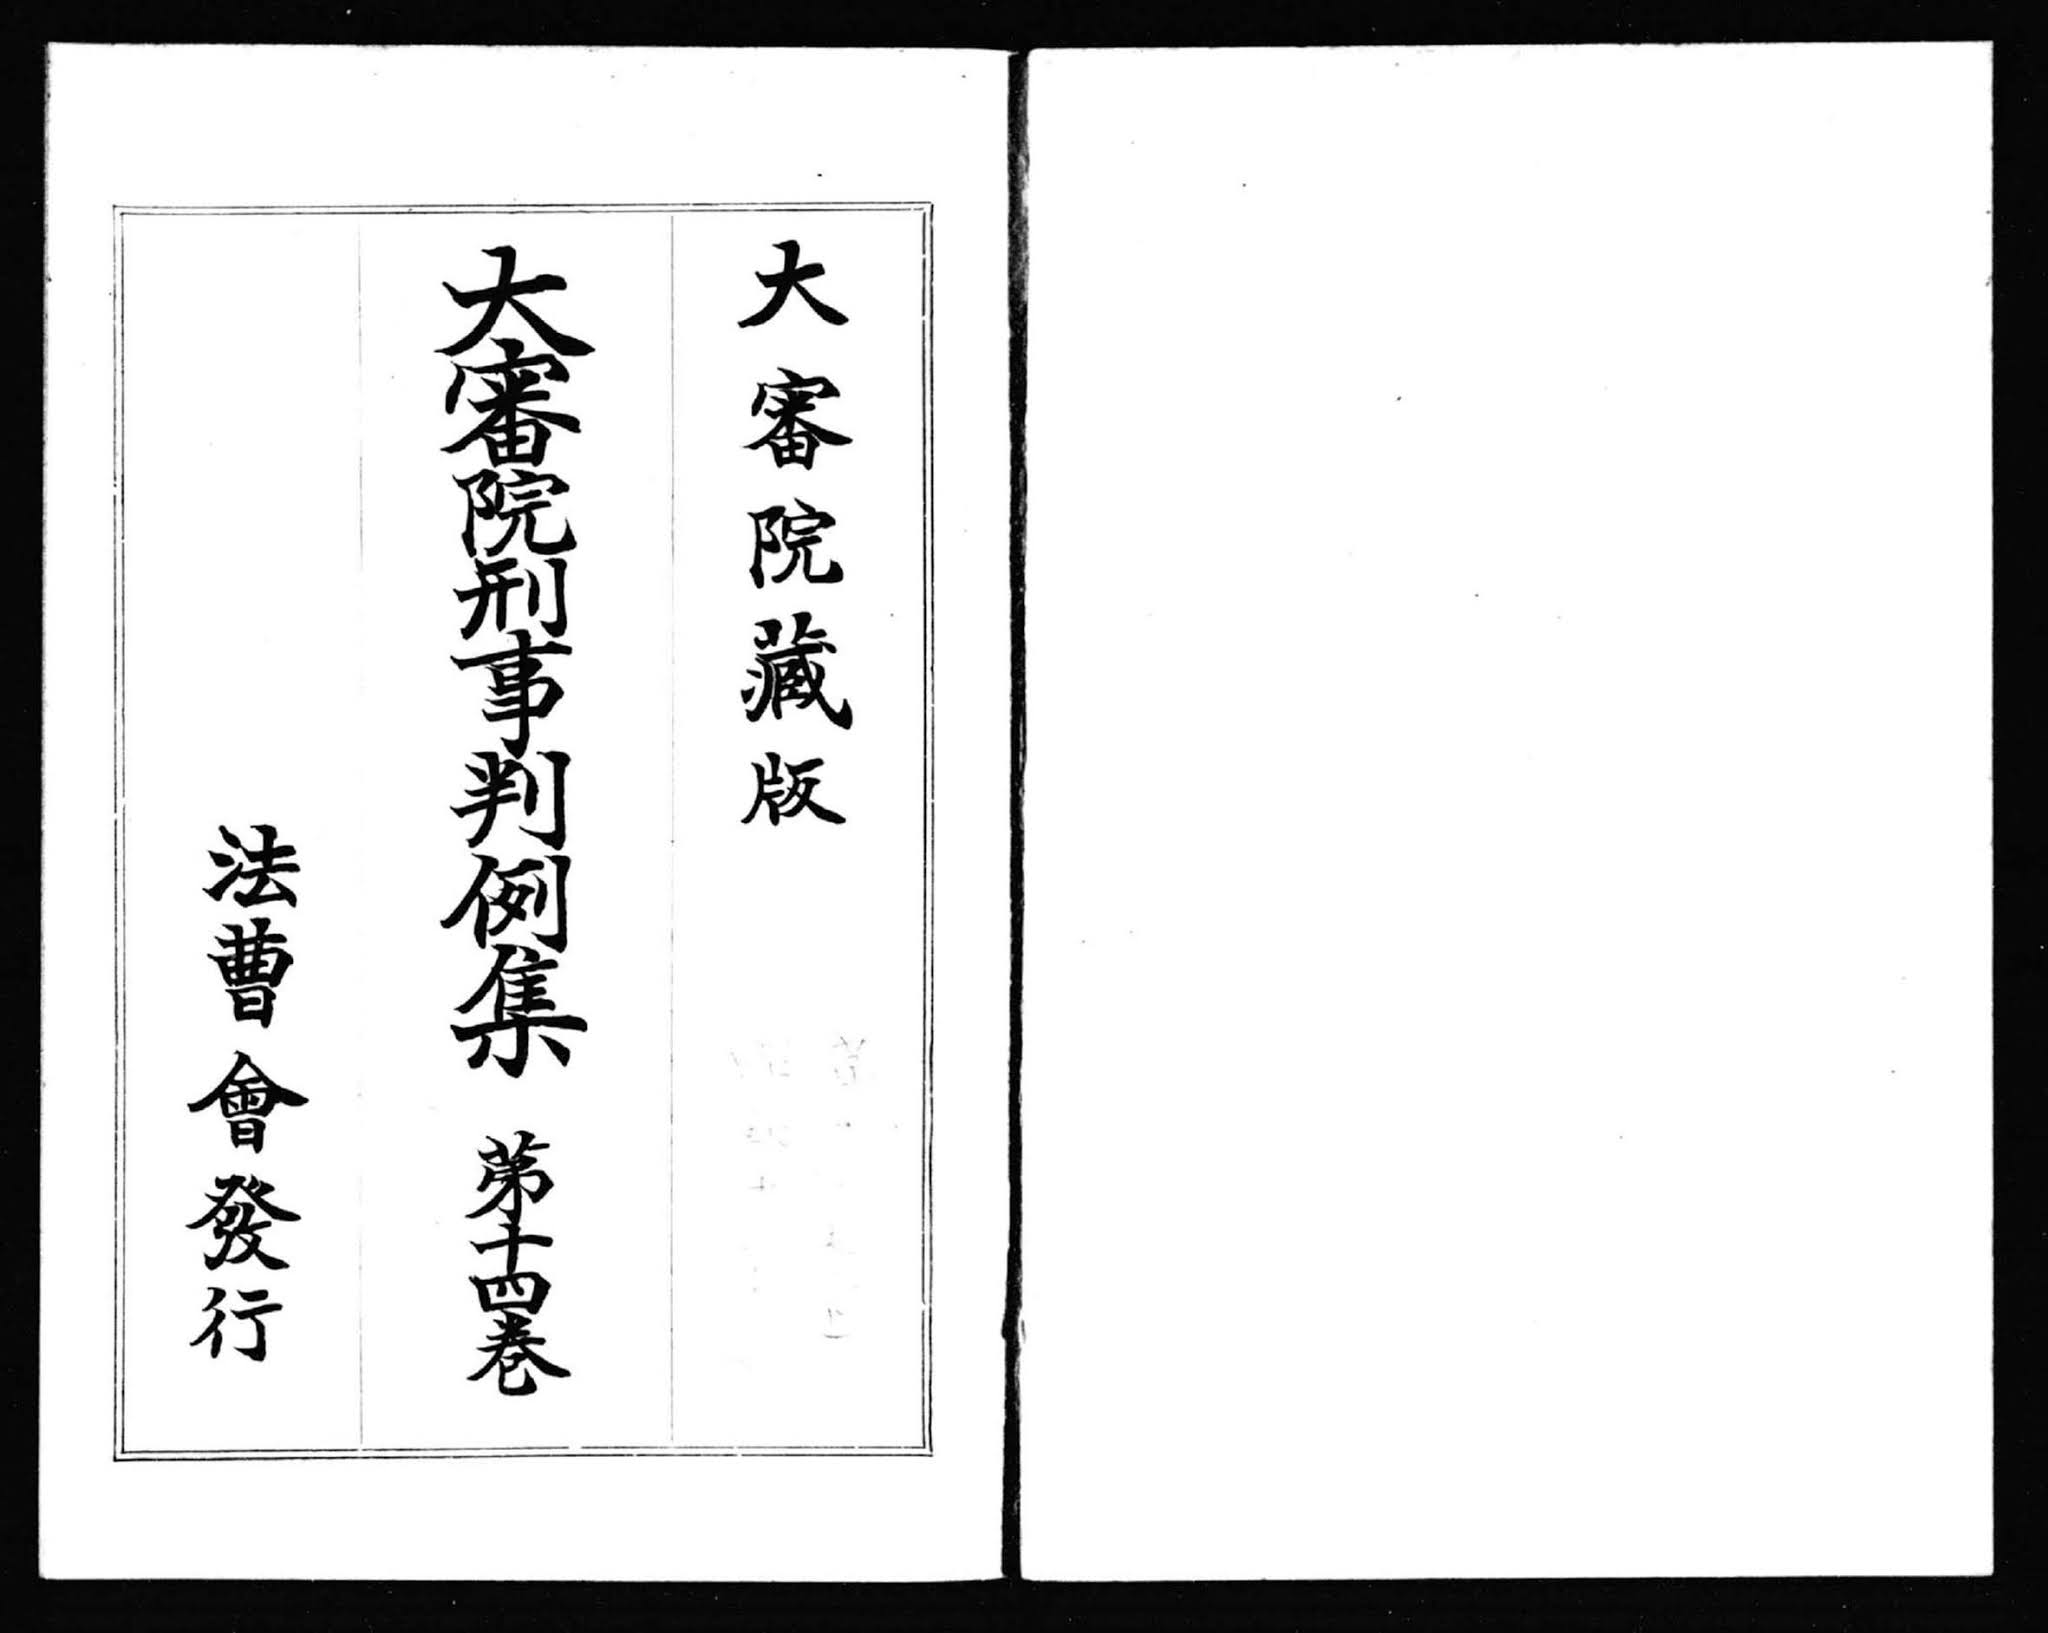 大審院藏版
大審院刑事判例集 第十四卷
法曹會發行